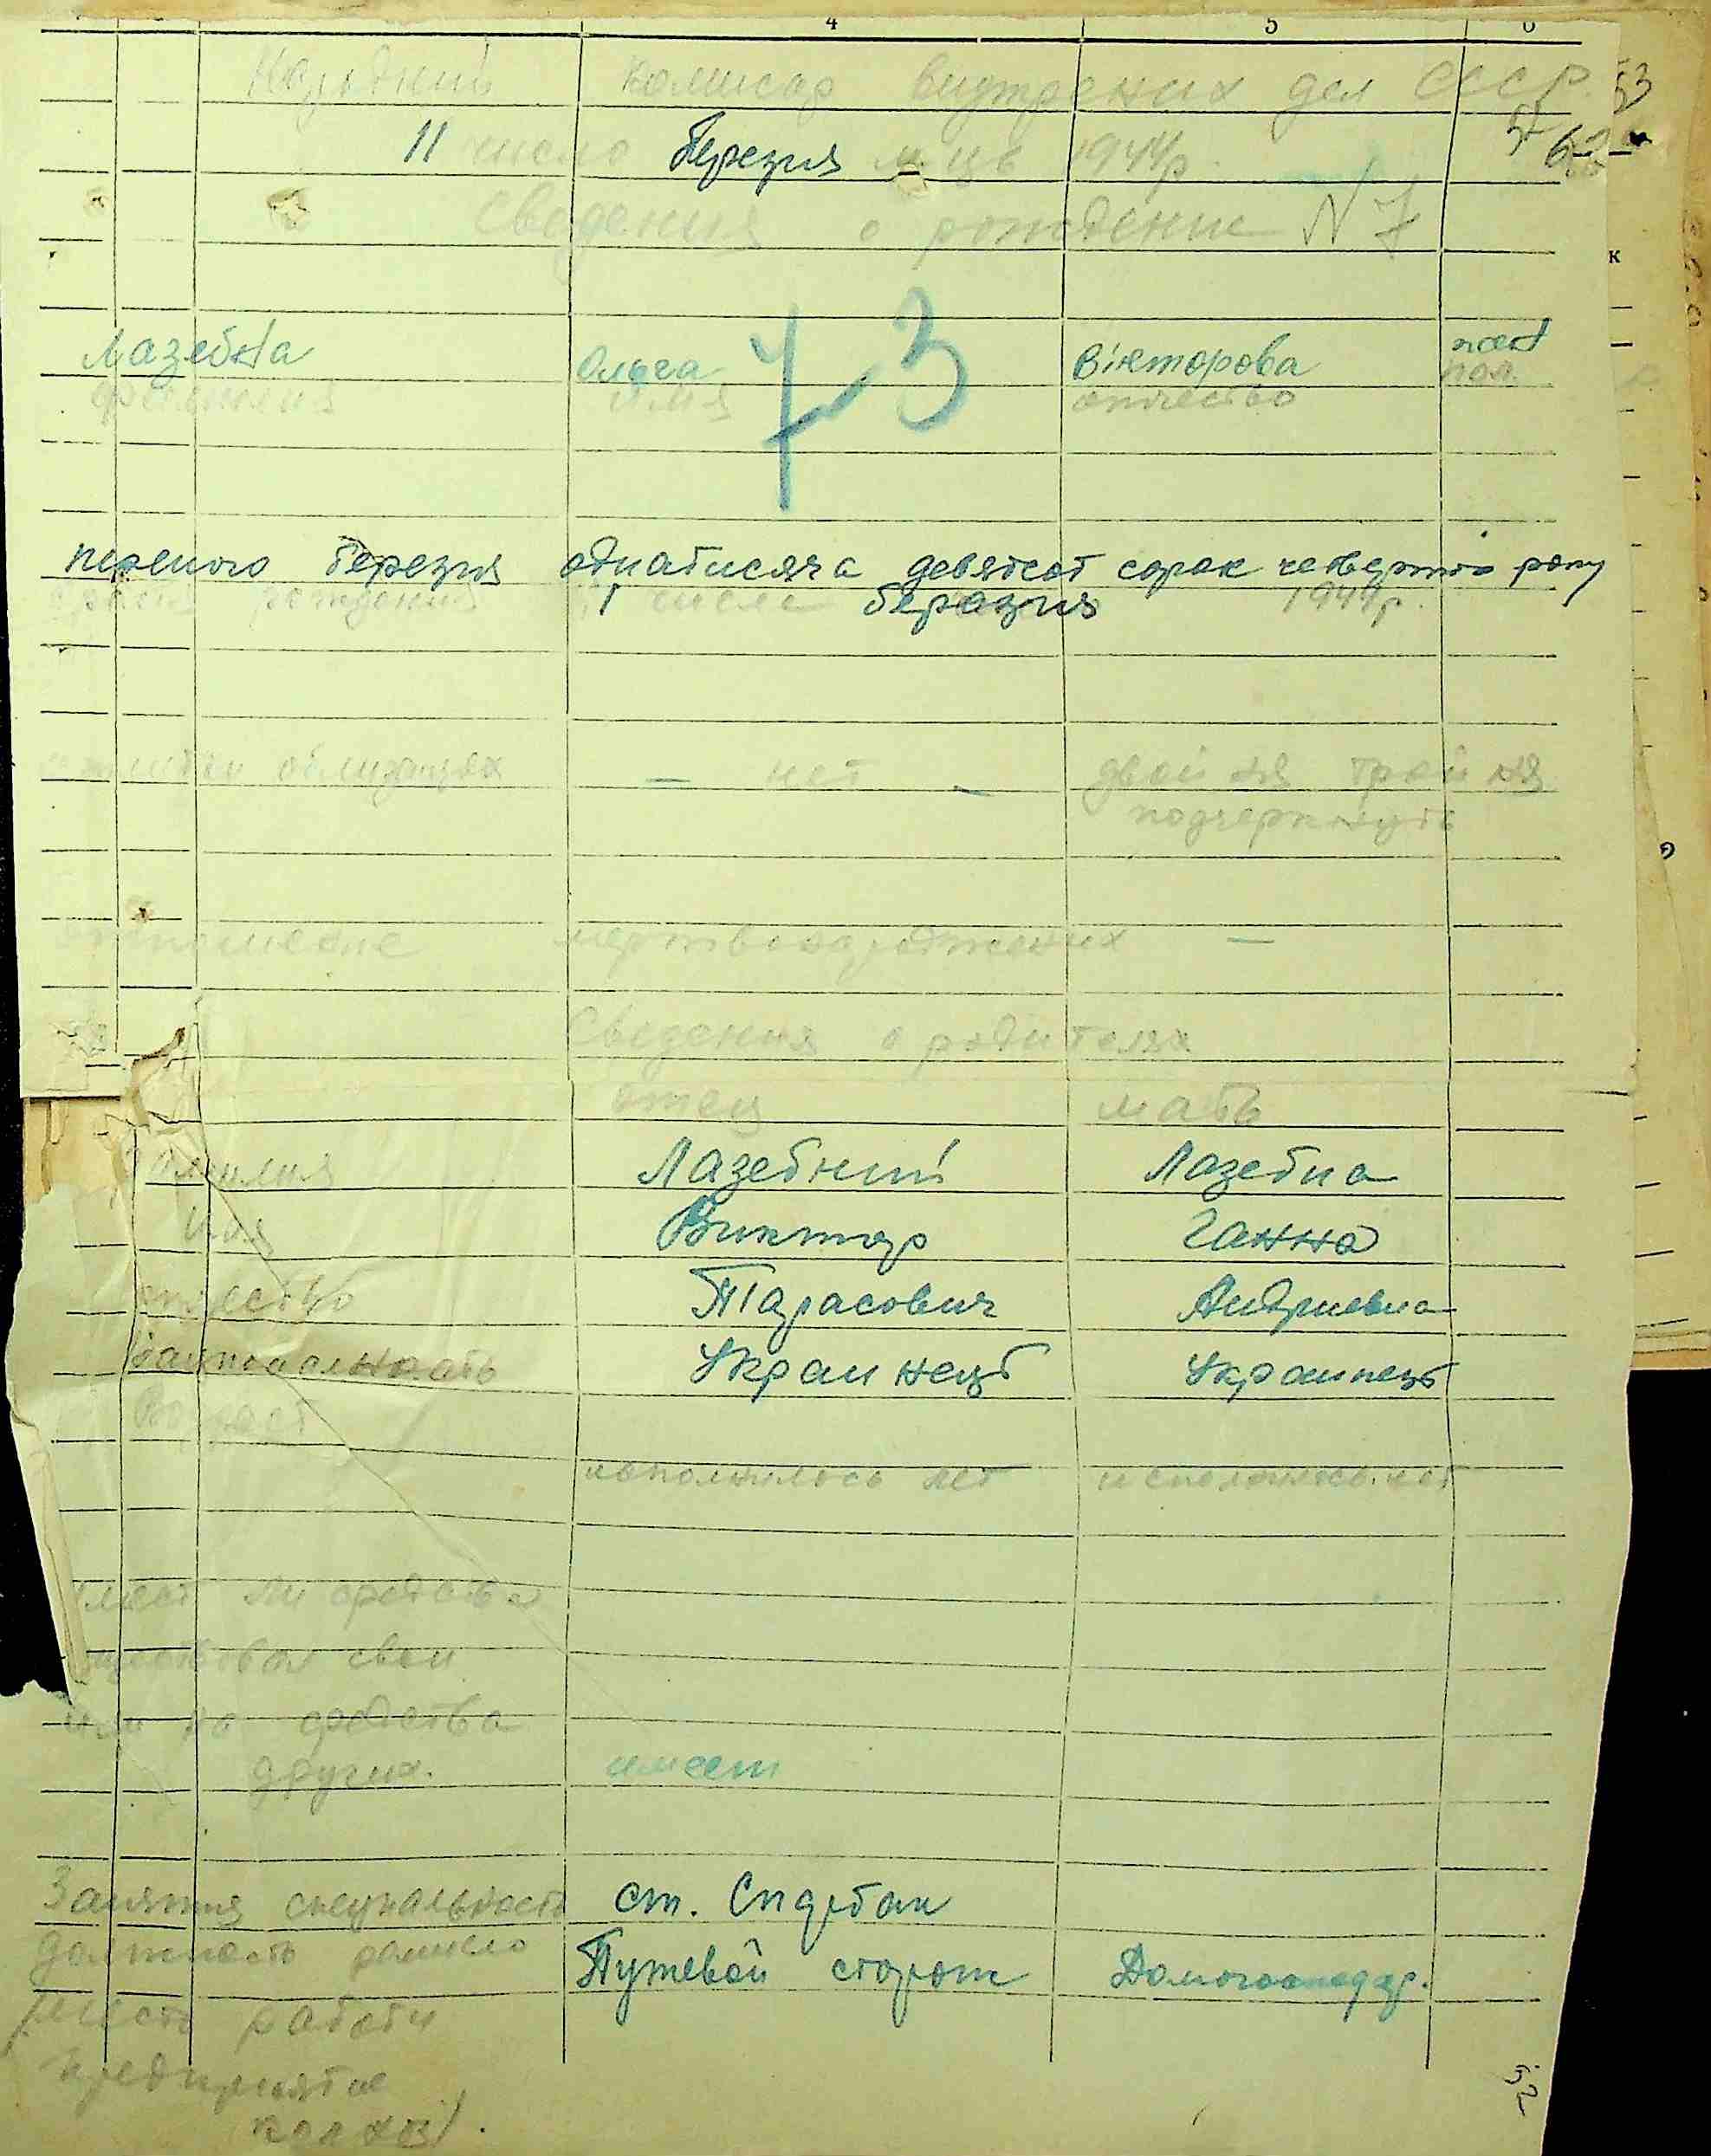 4 5 6
Народний комисар внутрених дел СССР. 53
11 число березня м-ць 1944р. 62
Сведения о рождение N 7
к
Лазебна Ольга Вікторова жен
фамилия имя отчество пол.
7 3
першого березня однатисяча девятсот сорок четвертого року
рождения 1 числа березня 1944р.
близнецах — нет — двойня тройня
подчеркнуть
мертвонарождених —
Сведения о родителях
отец мать
Фамилия Лазебний Лазебна
имя Виктор Ганна
отчество Тарасович Андриевна
националность Украинець Украинець
Возраст
исполнилось лет исполнилось лет
имеет ли средства
свои
или на средства
других. имеет
Занятия специальность ст.
должность ремесло Путевой сторож Домогосподар.
место работи
предприятие
колхоз).